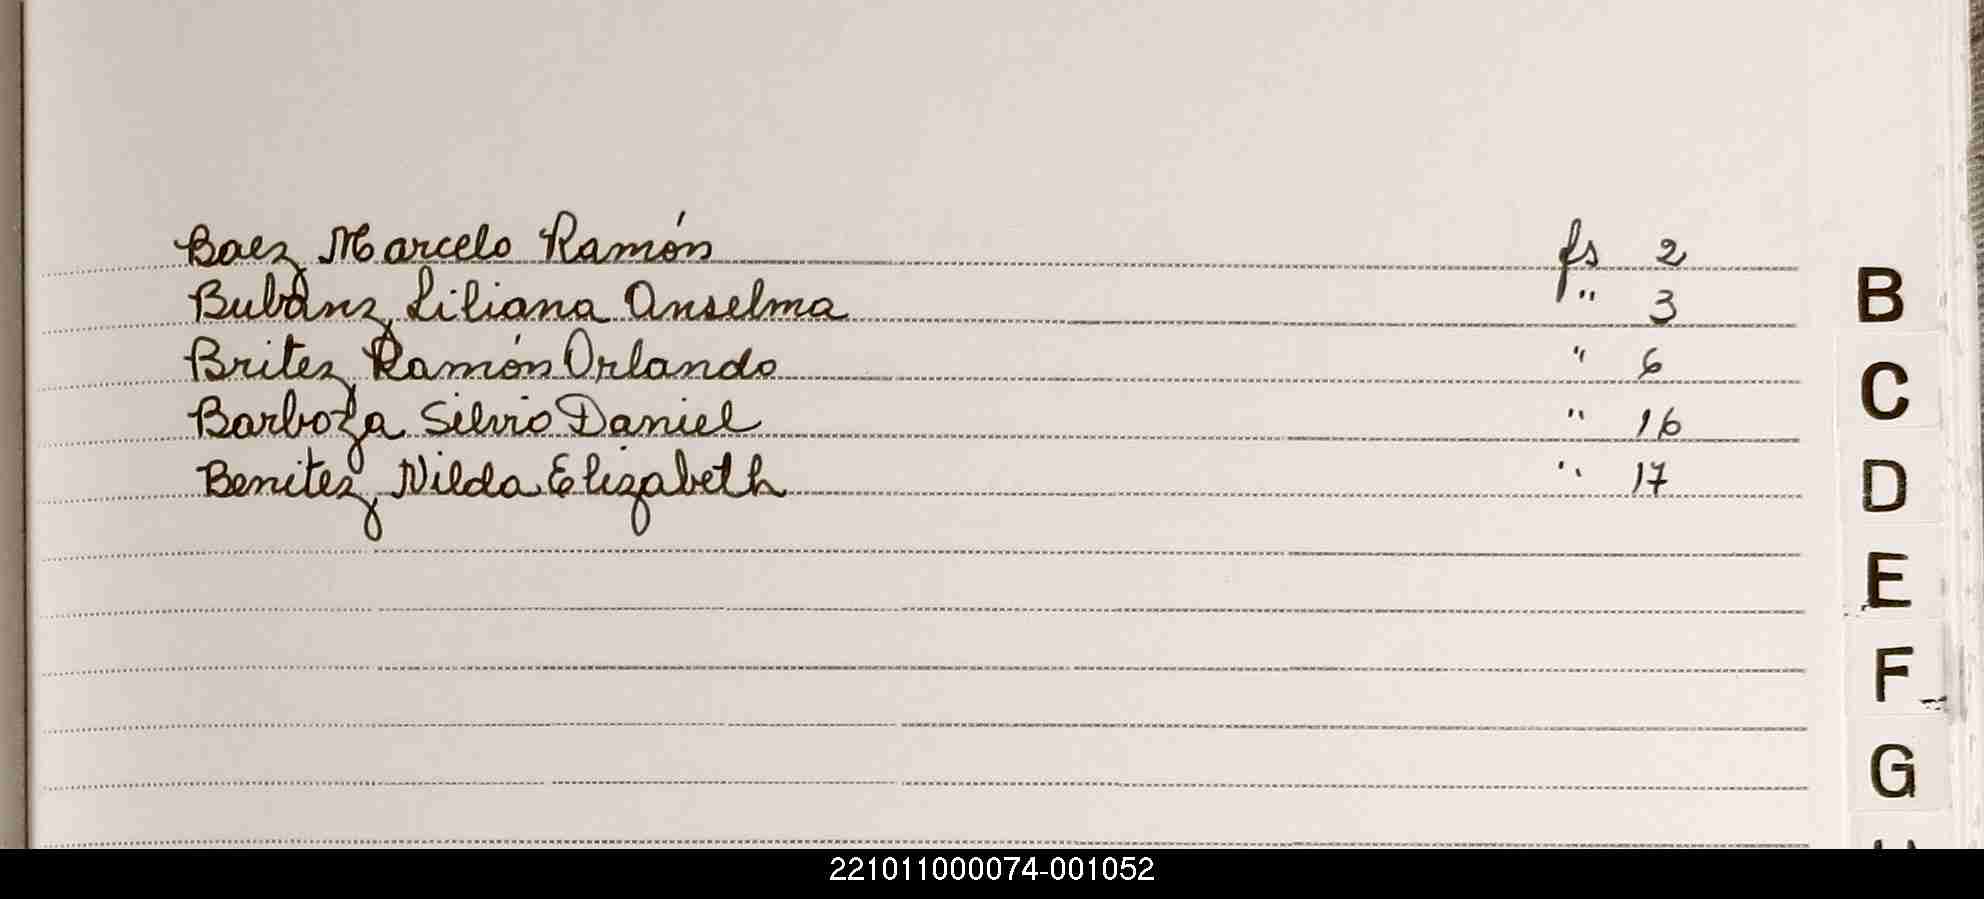 Baez Marcelo Ramón fs 2
Bubanz Liliana Anselma " 3
Britez Ramón Orlando " 6
Barboza Silvio Daniel " 16
Benitez Nilda Elizabeth " 17
B
C
D
E
F
G
221011000074-001052